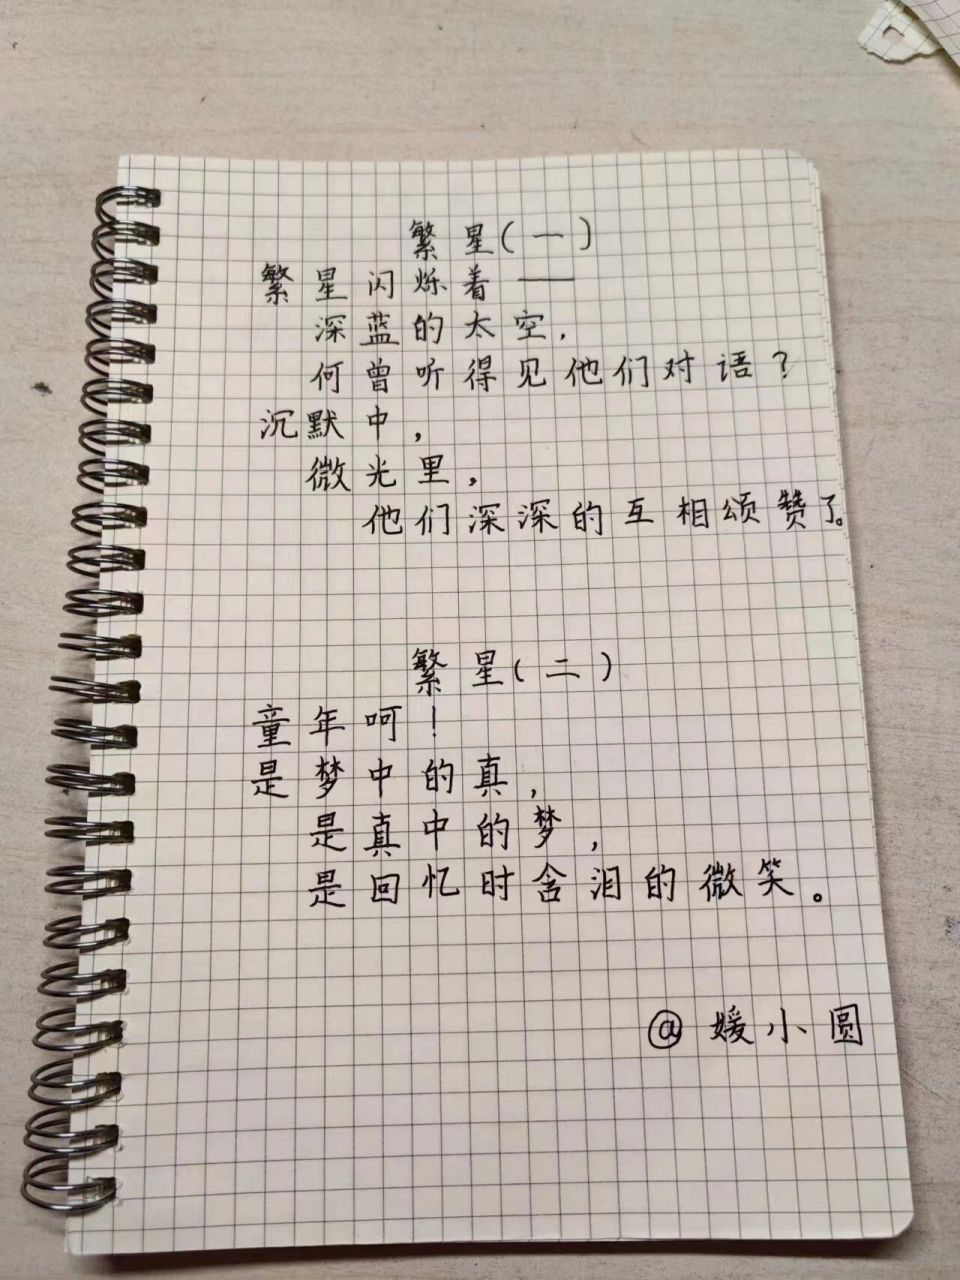 繁星(一)
繁星闪烁着——
深蓝的太空,
何曾听得见他们对语?
沉默中,
微光里,
他们深深的互相颂赞了。
繁星(二)
童年呵!
是梦中的真,
是真中的梦,
是回忆时含泪的微笑。
@媛小圆